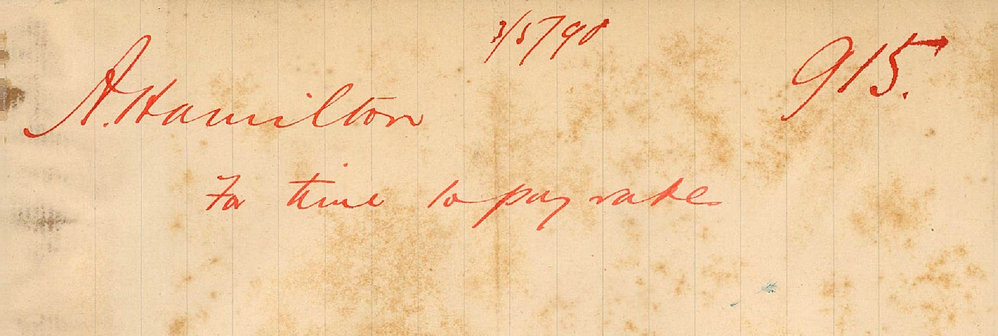 3/5/90
915.
A. Hamilton
For time to pay rates